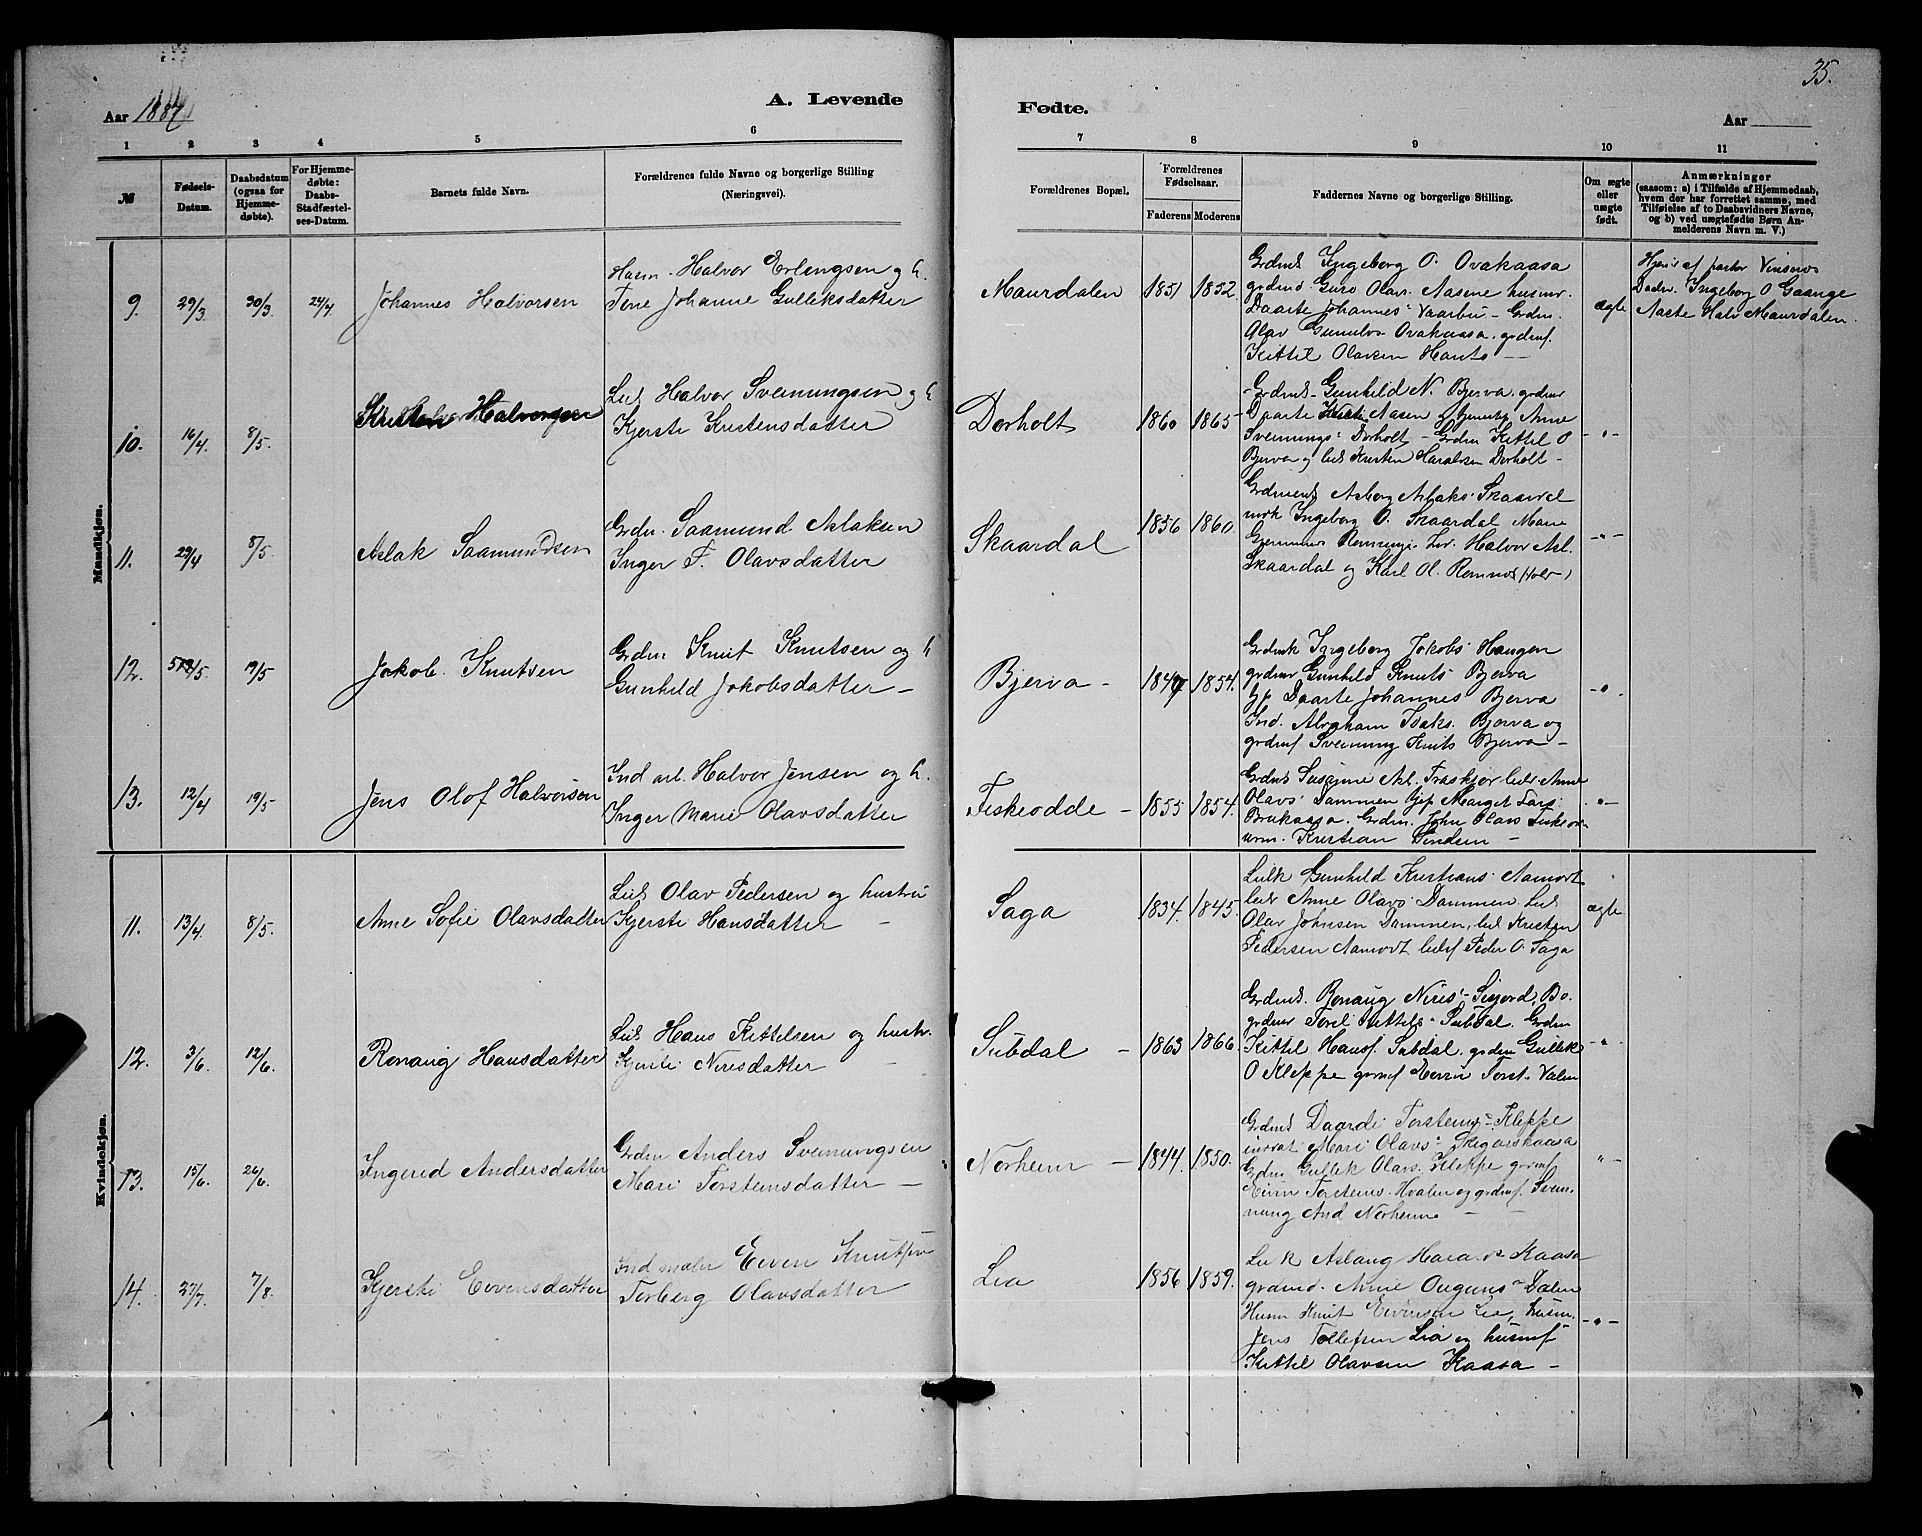 35.
Aar 1887
A. Levende
Fødte.
Aar
1 2 3 4 5 6 7 8 9 10 11
№
Fødsels-Datum.
Daabsdatum (ogsaa for Hjemmedøbte).
For Hjemmedøbte: Daabs-Stadfæstelses-Datum.
Barnets fulde Navn.
Forældrenes fulde Navne og borgerlige Stilling (Næringsvei).
Forældrenes Bopæl.
Forældrenes Fødselsaar.
Faderens Moderens
Faddernes Navne og borgerlige Stilling.
Om ægte eller uægte født.
Anmærkninger
(saasom: a) i Tilfælde af Hjemmedaab,
hvem der har forrettet samme, med
Tilføielse af to Daabsvidners Navne,
og b) ved uægtefødte Børn Anmelderens Navn m. V.)
Mandkjøn.
9. 29/3 30/3 24/4 Johannes Halvorsen
Halvor Erlengsen og h.
Tone Johanne Gulleksdatter
Maurdalen 1851 1852
Grdmd Ingeborg O. Ovakaasa
grdmd Guro Olav. Aasene husmr.
Daarte Johannes Vaarbu - Grdm.
Olav Gunulvs Ovakaasa. grdmf.
Kittil Olavsen Hants
ægte
Hjem af pastor Vinsnes
Ingeborg O Gaange
Aaste Halv Maurdalen.
10. 16/4 8/5. Kristen Halvorsen
Leil Halvor Sveinungsen og h
Kjersti Kristensdatter
Dorholt 1860 1865
Grdmd. Gunhild N. Bjerva grdmr
Daarte Aasen Anne
Sveinungs Dorholt - Grdm Kittil O
Bjerva og leil Kristen Haraldsen Dorholt -
-"-
11. 29/4 8/5 Aslak Saamundsen
Grdm. Saamund Aslaksen
Inger F. Olavsdatter
Skaardal 1856 1860.
Asberg Aslaks Skaardal
Ingeborg O. Skaardal Marie
Halvor Asl.
Skaardal og Karl Ol. Romnes (Holv)
-"-
12. 5/5. 19/5 Jakob Knutsen
Grdm Knut Knutsen og h
Gunhild Jakobsdatter -
Bjerva - 1847 1854.
Ingeborg Jakobs Haugen
grdmr Gunhild Knuts Bjerva
Gp Daarte Johannes Bjerva
Ind. Abraham Isaks. Bjerva og
grdmf Sveinung Knuts Bjerva -
-"-
13. 12/4 19/5 Jens Olof Halvorsen
Ind arb. Halvor Jensen og h.
Inger Marie Olavsdatter
Fiskeodde - 1855 1854.
Grdmd Susanne Asl. Traskjør leil Anne
Olavs Dammen Gp Marget Lars
Brukaasa. Grdm. John Olavs
Kristian Dindem -
-"-
Kvindekjøn.
11. 13/4 8/5. Anne Sofie Olavsdatter
Leil Olav Pedersen og hustru
Kjersti Hansdatter -
Saga 1834. 1845.
Leilk Gunhild Kristians Namovt
leil Anne Olavs Dammen. Leil
Olav Johnsen Dammen, leil Kristen
Pedersen Aamovt leilf Peder O. Saga
ægte
12. 3/6. 12/6. Ronaug Hansdatter
Leil Hans Kittilsen og hustr.
Nirisdatter -
Subdal - 1863 1866
Grdmd. Ronaug Niris - Bo.
grdmr Torel Kittels Subdal. Grdm
Kittil Hansf. Subdal. grdm Gullek
O Kleppe grmf Torst. Valen
-"-
13. 15/6. 26/6. Ingerid Andersdatter
Grdm Anders Sveinungsen
Mari Torsteinsdatter -
Norheim - 1844. 1850.
Grdmd Daardi Torsteins - Kleppe
Mari Olavs
Grdm Gullek Olavs. Kleppe grdmf
Torsteins. Hvalen og grdmf. Svein-
nung And Norheim -
-"-
14. 27/7. 7/8. Kjersti Eivensdatter
Ind Eiven Knutsen
Torberg Olavsdatter
Lia 1856 1859.
Aslaug Kaasa
grdmd. Anne Dalen
Husm Knut Eivensen Lia, husm.
Jens Tollefsen Lia og husmf
Kittil Olavsen Kaasa -
-"-